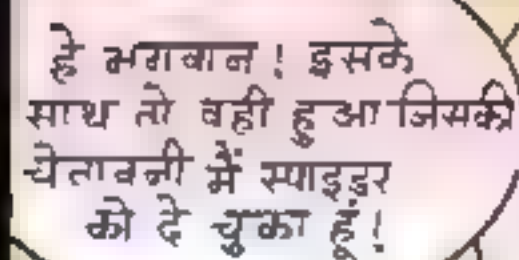 हे भगवान! इसके
साथ तो वही हुआ जिसकी
चेतावनी मैं स्पाइडर
को दे चुका हूं!